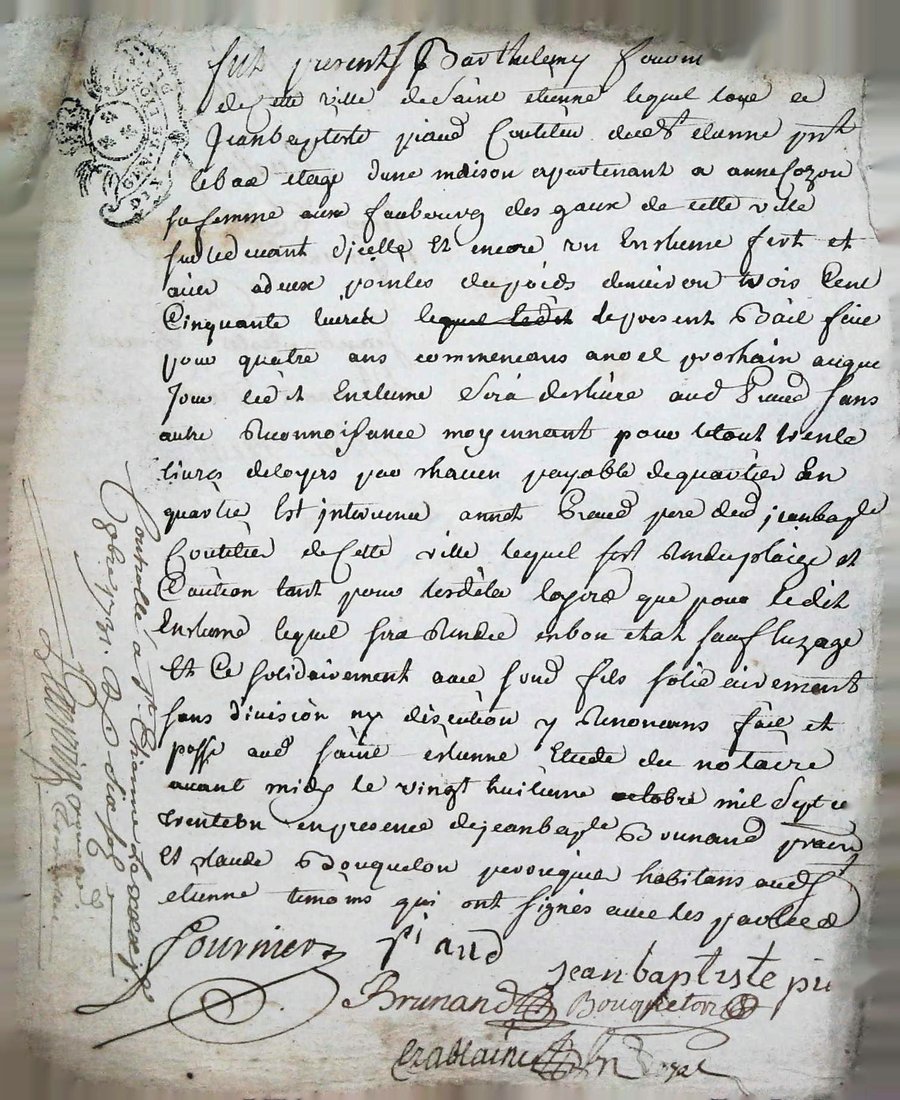 fut present Barthelemy
de Cette ville de Saint etienne lequel loue a
Jean baptiste piaud Coutelier dud St etienne pnt
le bas etage dune maison apartenant a anne Cozon
sa femme aux faubourg des gaux de cette ville
sur le devant dicelle Et encore un Enclume fert et
acier a deux pointes du poids denviron trois Cent
Cinquante livres le present Bail faict
pour quatre ans commencans a noel prochain auque
Jour ledit Enclume Sera deslivre aud Piaud sans
autre Reconnoissance moyennant pour letout trente
livres deloyers par chacun payable de quartier En
quartier Est intervenu annet Piaud pere dud jean bapte
Coutelier de Cette ville lequel sest Rendu plaige et
Caution tant pour lesdits loyers que pour ledit
Enclume lequel sera Rendue en bon etat sauf luzage
Et Ce solidairement avec sond fils solidairement
sans division ny discution y Renoncans fait et
passe aud saint etienne Etude du notaire
avant midy le vingt huitieme octobre mil Sept ce
trente un en presence de jean bapte Brunand
Et claude Bouqueton peruquier habitans aud St
etienne temoins qui ont signés avec les parties
Fournier piaud
jean baptiste pi
Brunand Bouqueton
Crablaine
Controllé a St Etienne
8bre 1731
GEN DE LYON